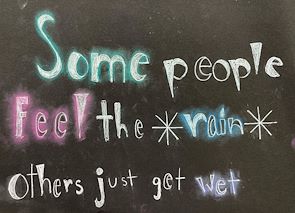 Some people
Feel the *rain*
Others just get wet